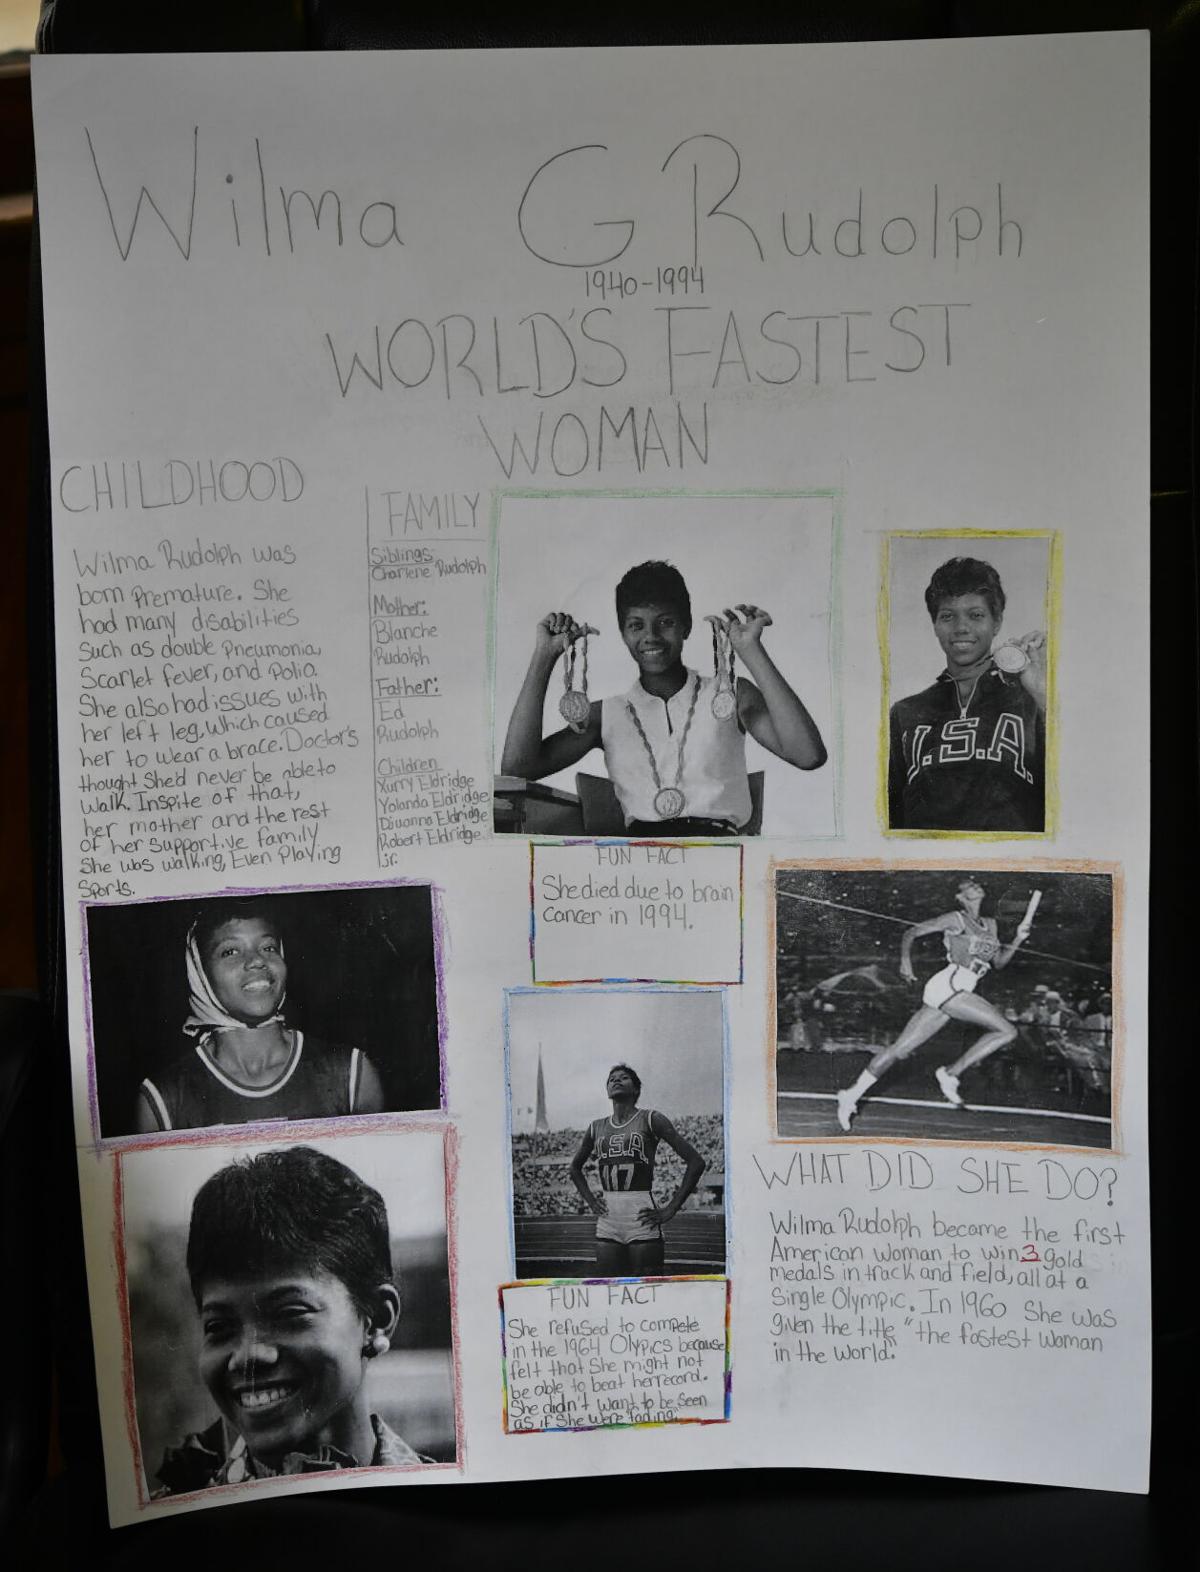 Wilma G Rudolph
1940-1994
WORLD'S FASTEST
WOMAN
CHILDHOOD
Wilma Rudolph was
born Premature. She
had many disabilities
such as double Pneumonia,
Scarlet fever, and Polio.
She also had issues with
her left leg, which caused
her to wear a brace. Doctor's
thought She'd never be able to
Walk. Inspite of that,
her mother and the rest
of her supportive family
She was walking, Even Playing
Sports.
FAMILY
Siblings:
Charlene Rudolph
Mother:
Blanche
Rudolph
Father:
Ed
Rudolph
Children
Xurry Eldridge
Yolanda Eldridge
Djuanna Eldridge
Robert Eldridge
jr.
U.S.A.
FUN FACT
She died due to brain
cancer in 1994.
U.S.A.
117
FUN FACT
She refused to compete
in the 1964 Olypics because
felt that She might not
be able to beat her record.
She didn't want to be seen
as if She were "fading."
WHAT DID SHE DO?
Wilma Rudolph became the first
American woman to win 3 gold
medals in track and field, all at a
Single Olympic. In 1960 She was
given the title "the fastest woman
in the world."